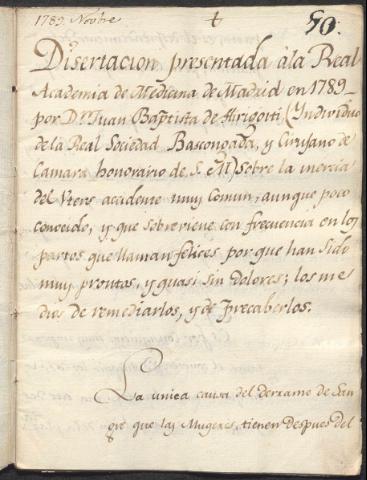 1789. Novbre + 50.
Disertacion presentada à la Real
Academia de Medicina de Madrid en 1789_
por Dn. Juan Baptista de Arigoiti, (Yndividuo
de la Real Sociedad Bascongada, y Cirujano de
Camara honorario de S. M) Sobre la inercia
del Utero accidente muy comun, aunque poco
conocido, y que sobreviene con frecuencia en los
partos que llaman felices, por que han sido
muy prontos, y quasi sin dolores; los me
dios de remediarlos, y de precaberlos.
La unica causa del derramo de San
gre que las Mugeres, tienen despues del